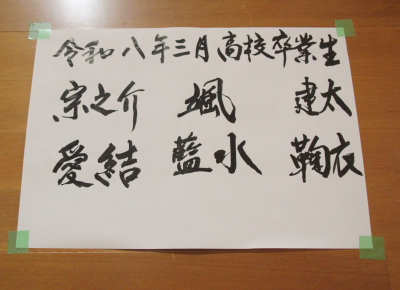 令和八年三月高校卒業生
宗之介 颯 建太
愛結 藍水 鞠衣